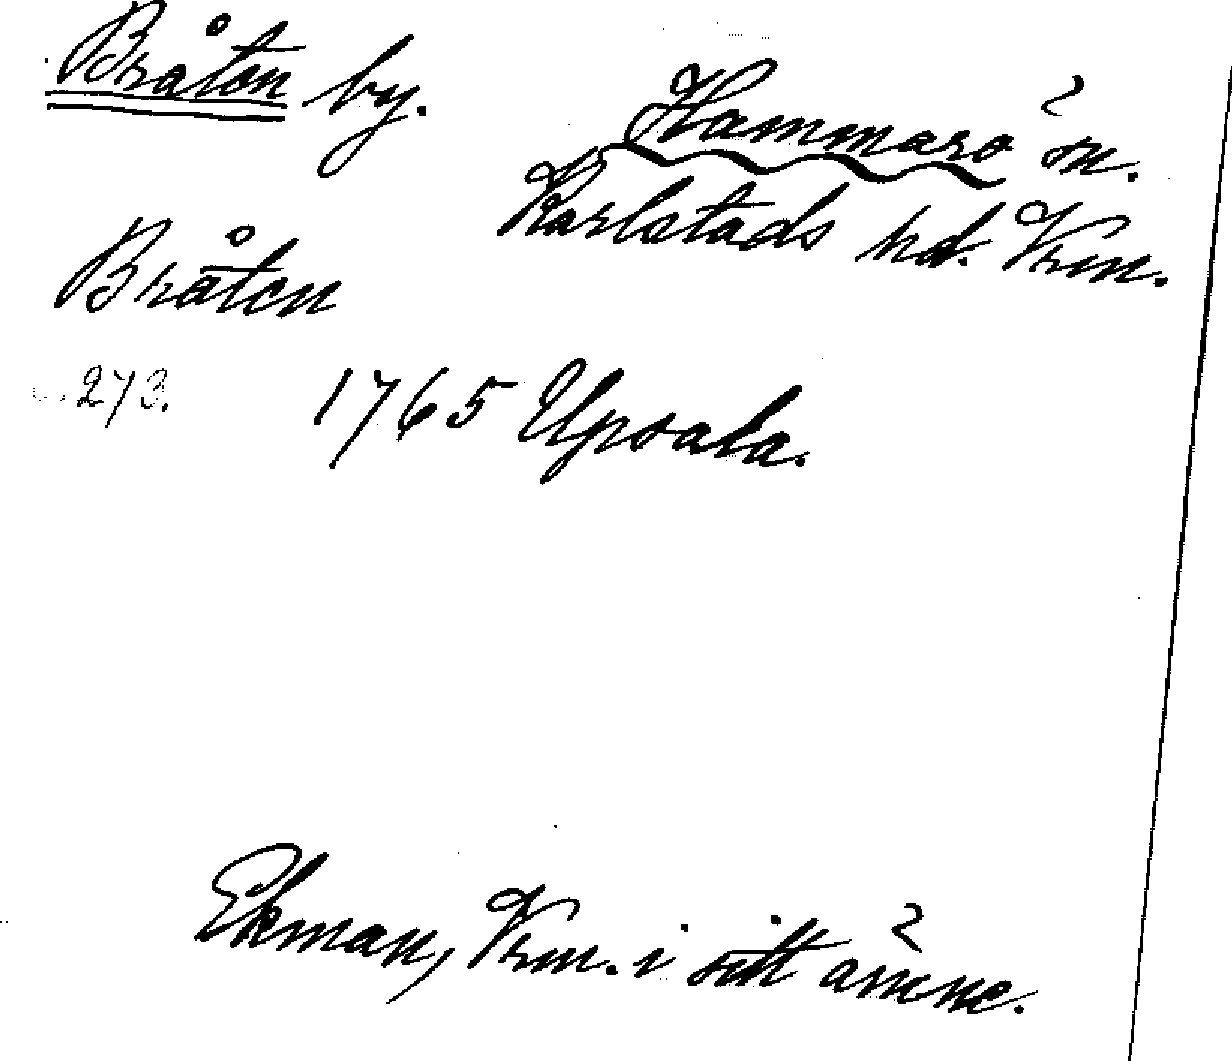 Bråten by.
Hammarö sn.
Karlstads hd. Vrm.
Bråten
273.
1765 Upsala.
Ekman, Vrm. i sitt ämne.